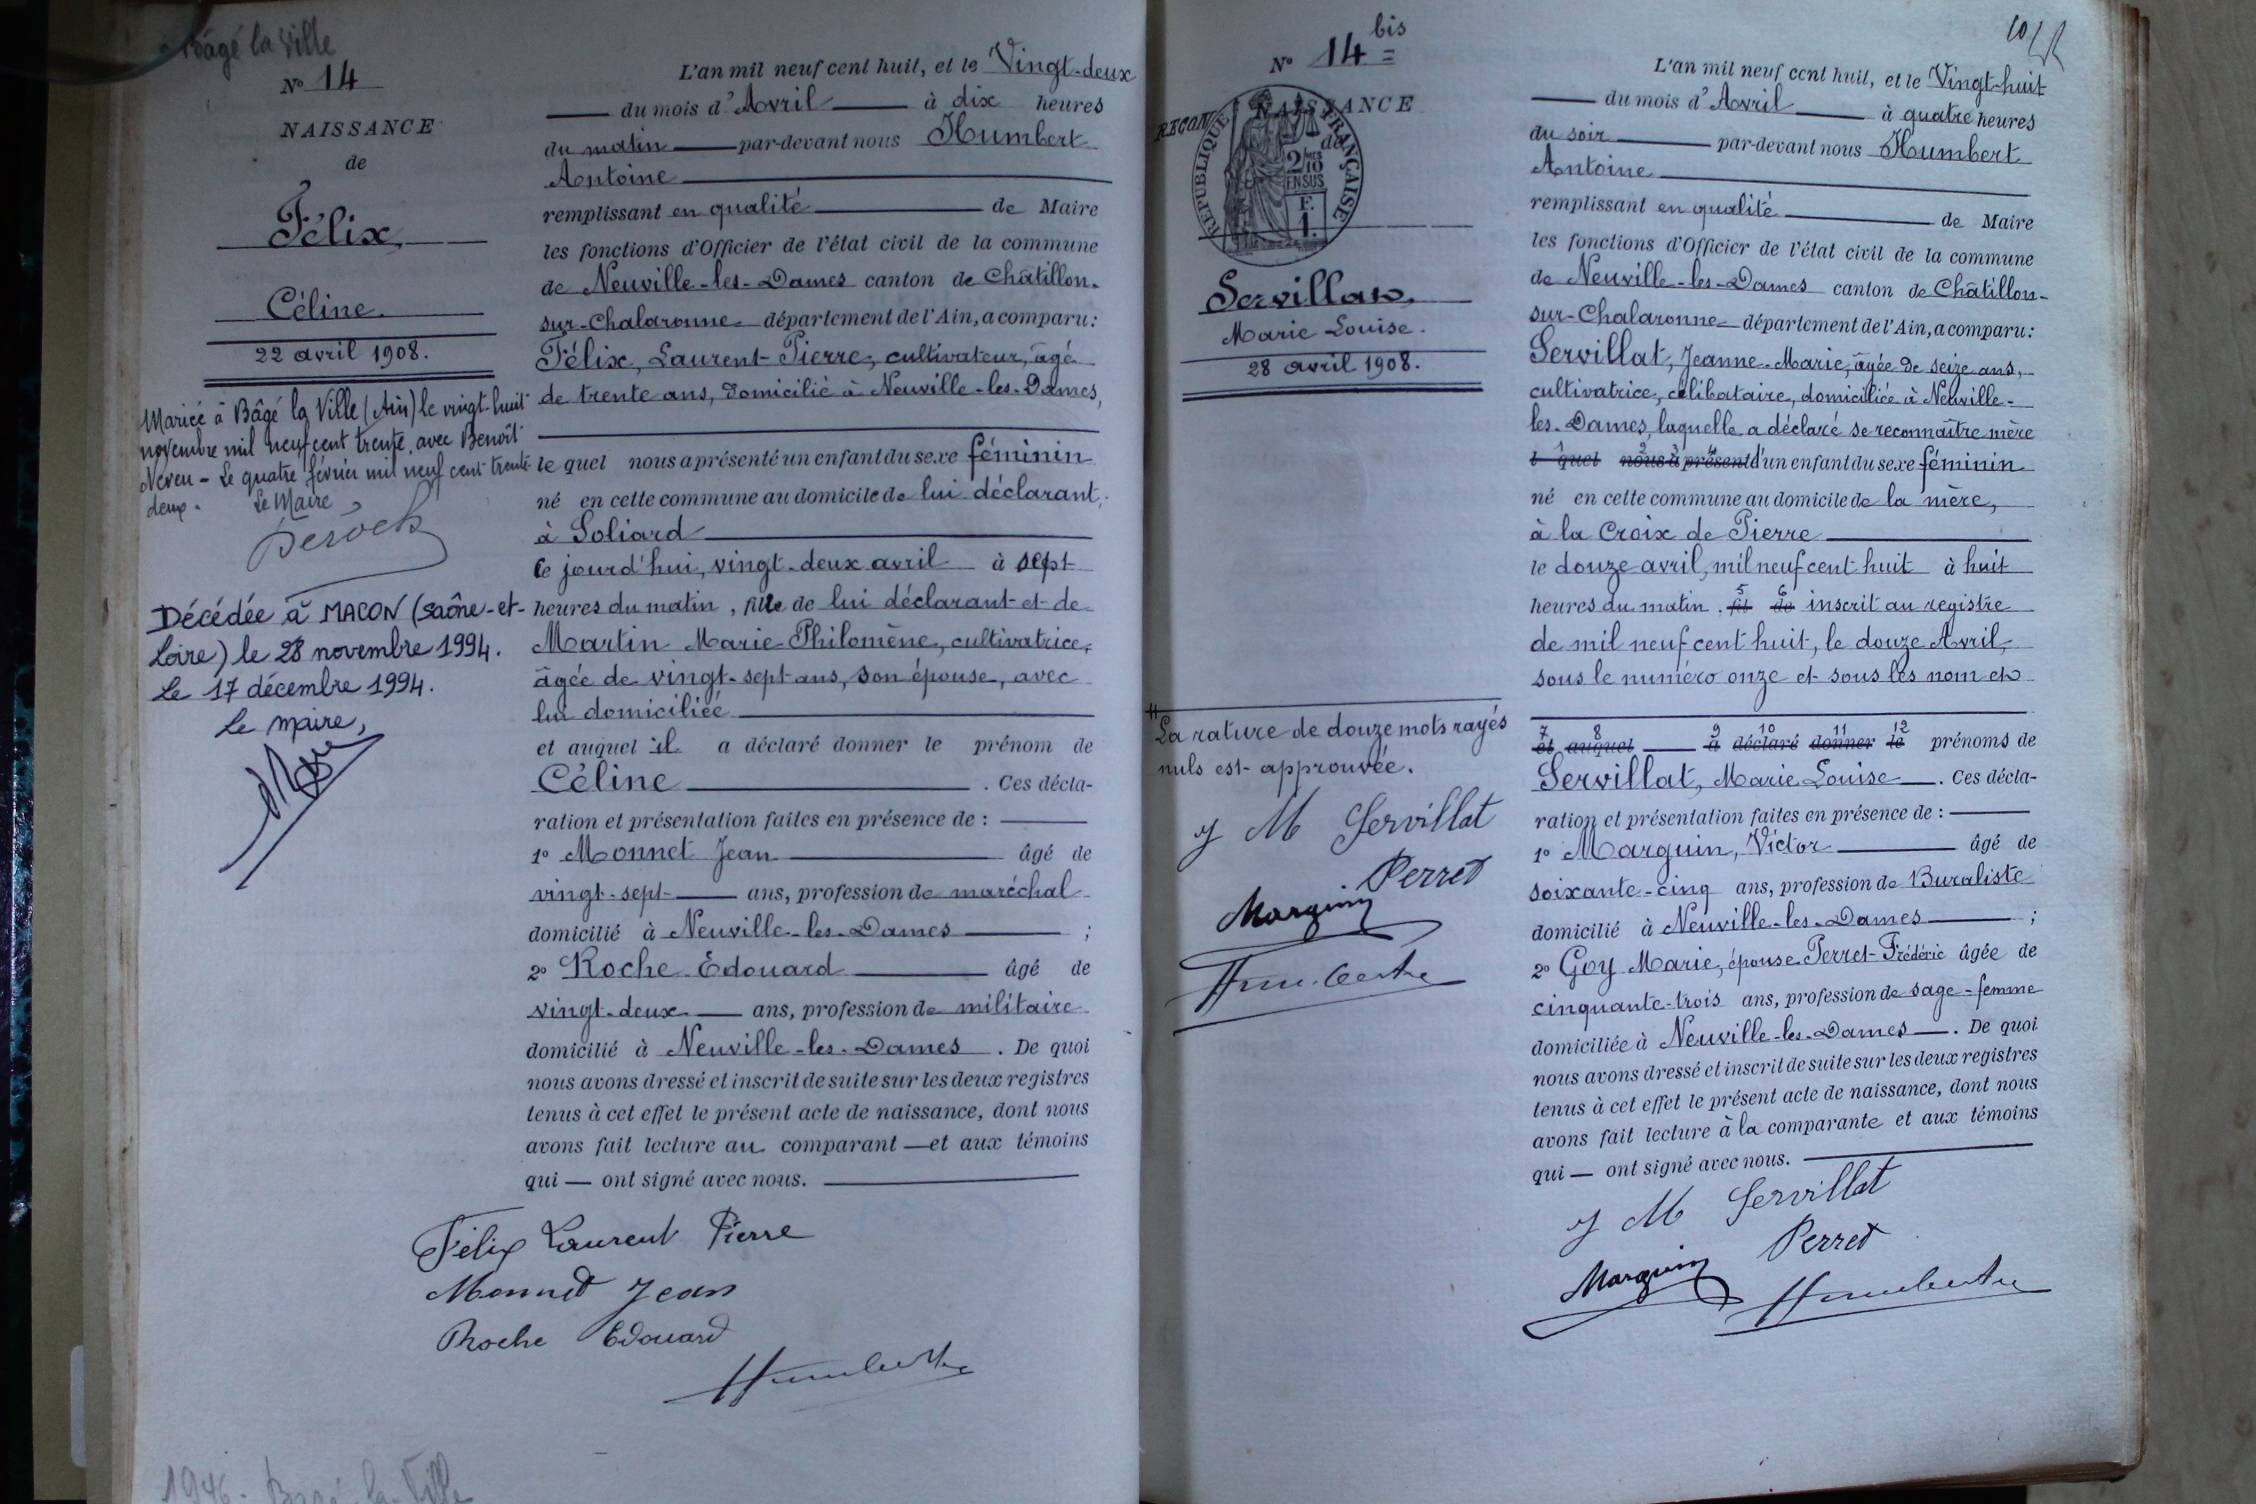 Bâgé la Ville
N° 14
NAISSANCE
de
Félix,
Céline.
22 avril 1908.
Mariée à Bâgé la Ville (Ain) le vingt-huit
novembre mil neuf cent trente, avec Benoît
Neveu - Le quatre février mil neuf cent trente
deux.
Le Maire
Décédée à MACON (Saône-et-
Loire) le 28 novembre 1994.
Le 17 décembre 1994.
Le maire,
L'an mil neuf cent huit, et le Vingt-deux
du mois d'Avril à dix heures
du matin par-devant nous Humbert
Antoine
remplissant en qualité de Maire
les fonctions d'Officier de l'état civil de la commune
de Neuville-les-Dames canton de Châtillon-
sur-Chalaronne département de l'Ain, a comparu:
Félix, Laurent-Pierre, cultivateur, âgé
de trente ans, domicilié à Neuville-les-Dames,
le quel nous a présenté un enfant du sexe féminin
né en cette commune au domicile de lui déclarant,
à Soliard
ce jourd'hui, vingt-deux avril à sept
heures du matin, fille de lui déclarant et de
Martin Marie Philomène, cultivatrice,
âgée de vingt-sept ans, son épouse, avec
lui domiciliée
et auquel il a déclaré donner le prénom de
Céline. Ces décla-
ration et présentation faites en présence de :
1° Monnet Jean âgé de
vingt-sept ans, profession de maréchal
domicilié à Neuville-les-Dames ;
2° Roche Edouard âgé de
vingt-deux ans, profession de militaire
domicilié à Neuville-les-Dames. De quoi
nous avons dressé et inscrit de suite sur les deux registres
tenus à cet effet le présent acte de naissance, dont nous
avons fait lecture au comparant — et aux témoins
qui — ont signé avec nous.
Félix Laurent Pierre
Monnet Jean
Roche Edouard
Humbert
1946 - Bâgé-la-Ville
N° 14 bis
RECON NAISSANCE
de
RÉPUBLIQUE FRANÇAISE
2/10
EN SUS
F.
1.
Servillat,
Marie Louise.
28 avril 1908.
La rature de douze mots rayés
nuls est approuvée.
J M Servillat
Perret
Marguin
Humbert
L'an mil neuf cent huit, et le Vingt-huit
du mois d'Avril à quatre heures
du soir par-devant nous Humbert
Antoine
remplissant en qualité de Maire
les fonctions d'Officier de l'état civil de la commune
de Neuville-les-Dames canton de Châtillon-
sur-Chalaronne département de l'Ain, a comparu:
Servillat, Jeanne-Marie, âgée de seize ans,
cultivatrice, célibataire, domiciliée à Neuville-
les-Dames, laquelle a déclaré se reconnaître mère
l quel nous a présenté d'un enfant du sexe féminin
né en cette commune au domicile de la mère,
à la Croix de Pierre
le douze avril, mil neuf cent huit à huit
heures du matin. 5 fil 6 de inscrit au registre
de mil neuf cent huit, le douze Avril,
sous le numéro onze et sous les nom et
7 8 9 10 11 12
et auquel a déclaré donner le prénoms de
Servillat, Marie Louise. Ces décla-
ration et présentation faites en présence de :
1° Marguin, Victor âgé de
soixante-cinq ans, profession de Buraliste
domicilié à Neuville-les-Dames ;
2° Goy Marie, épouse Perret Frédéric âgée de
cinquante-trois ans, profession de sage-femme
domiciliée à Neuville-les-Dames. De quoi
nous avons dressé et inscrit de suite sur les deux registres
tenus à cet effet le présent acte de naissance, dont nous
avons fait lecture à la comparante et aux témoins
qui — ont signé avec nous.
J M Servillat
Perret
Marguin
Humbert